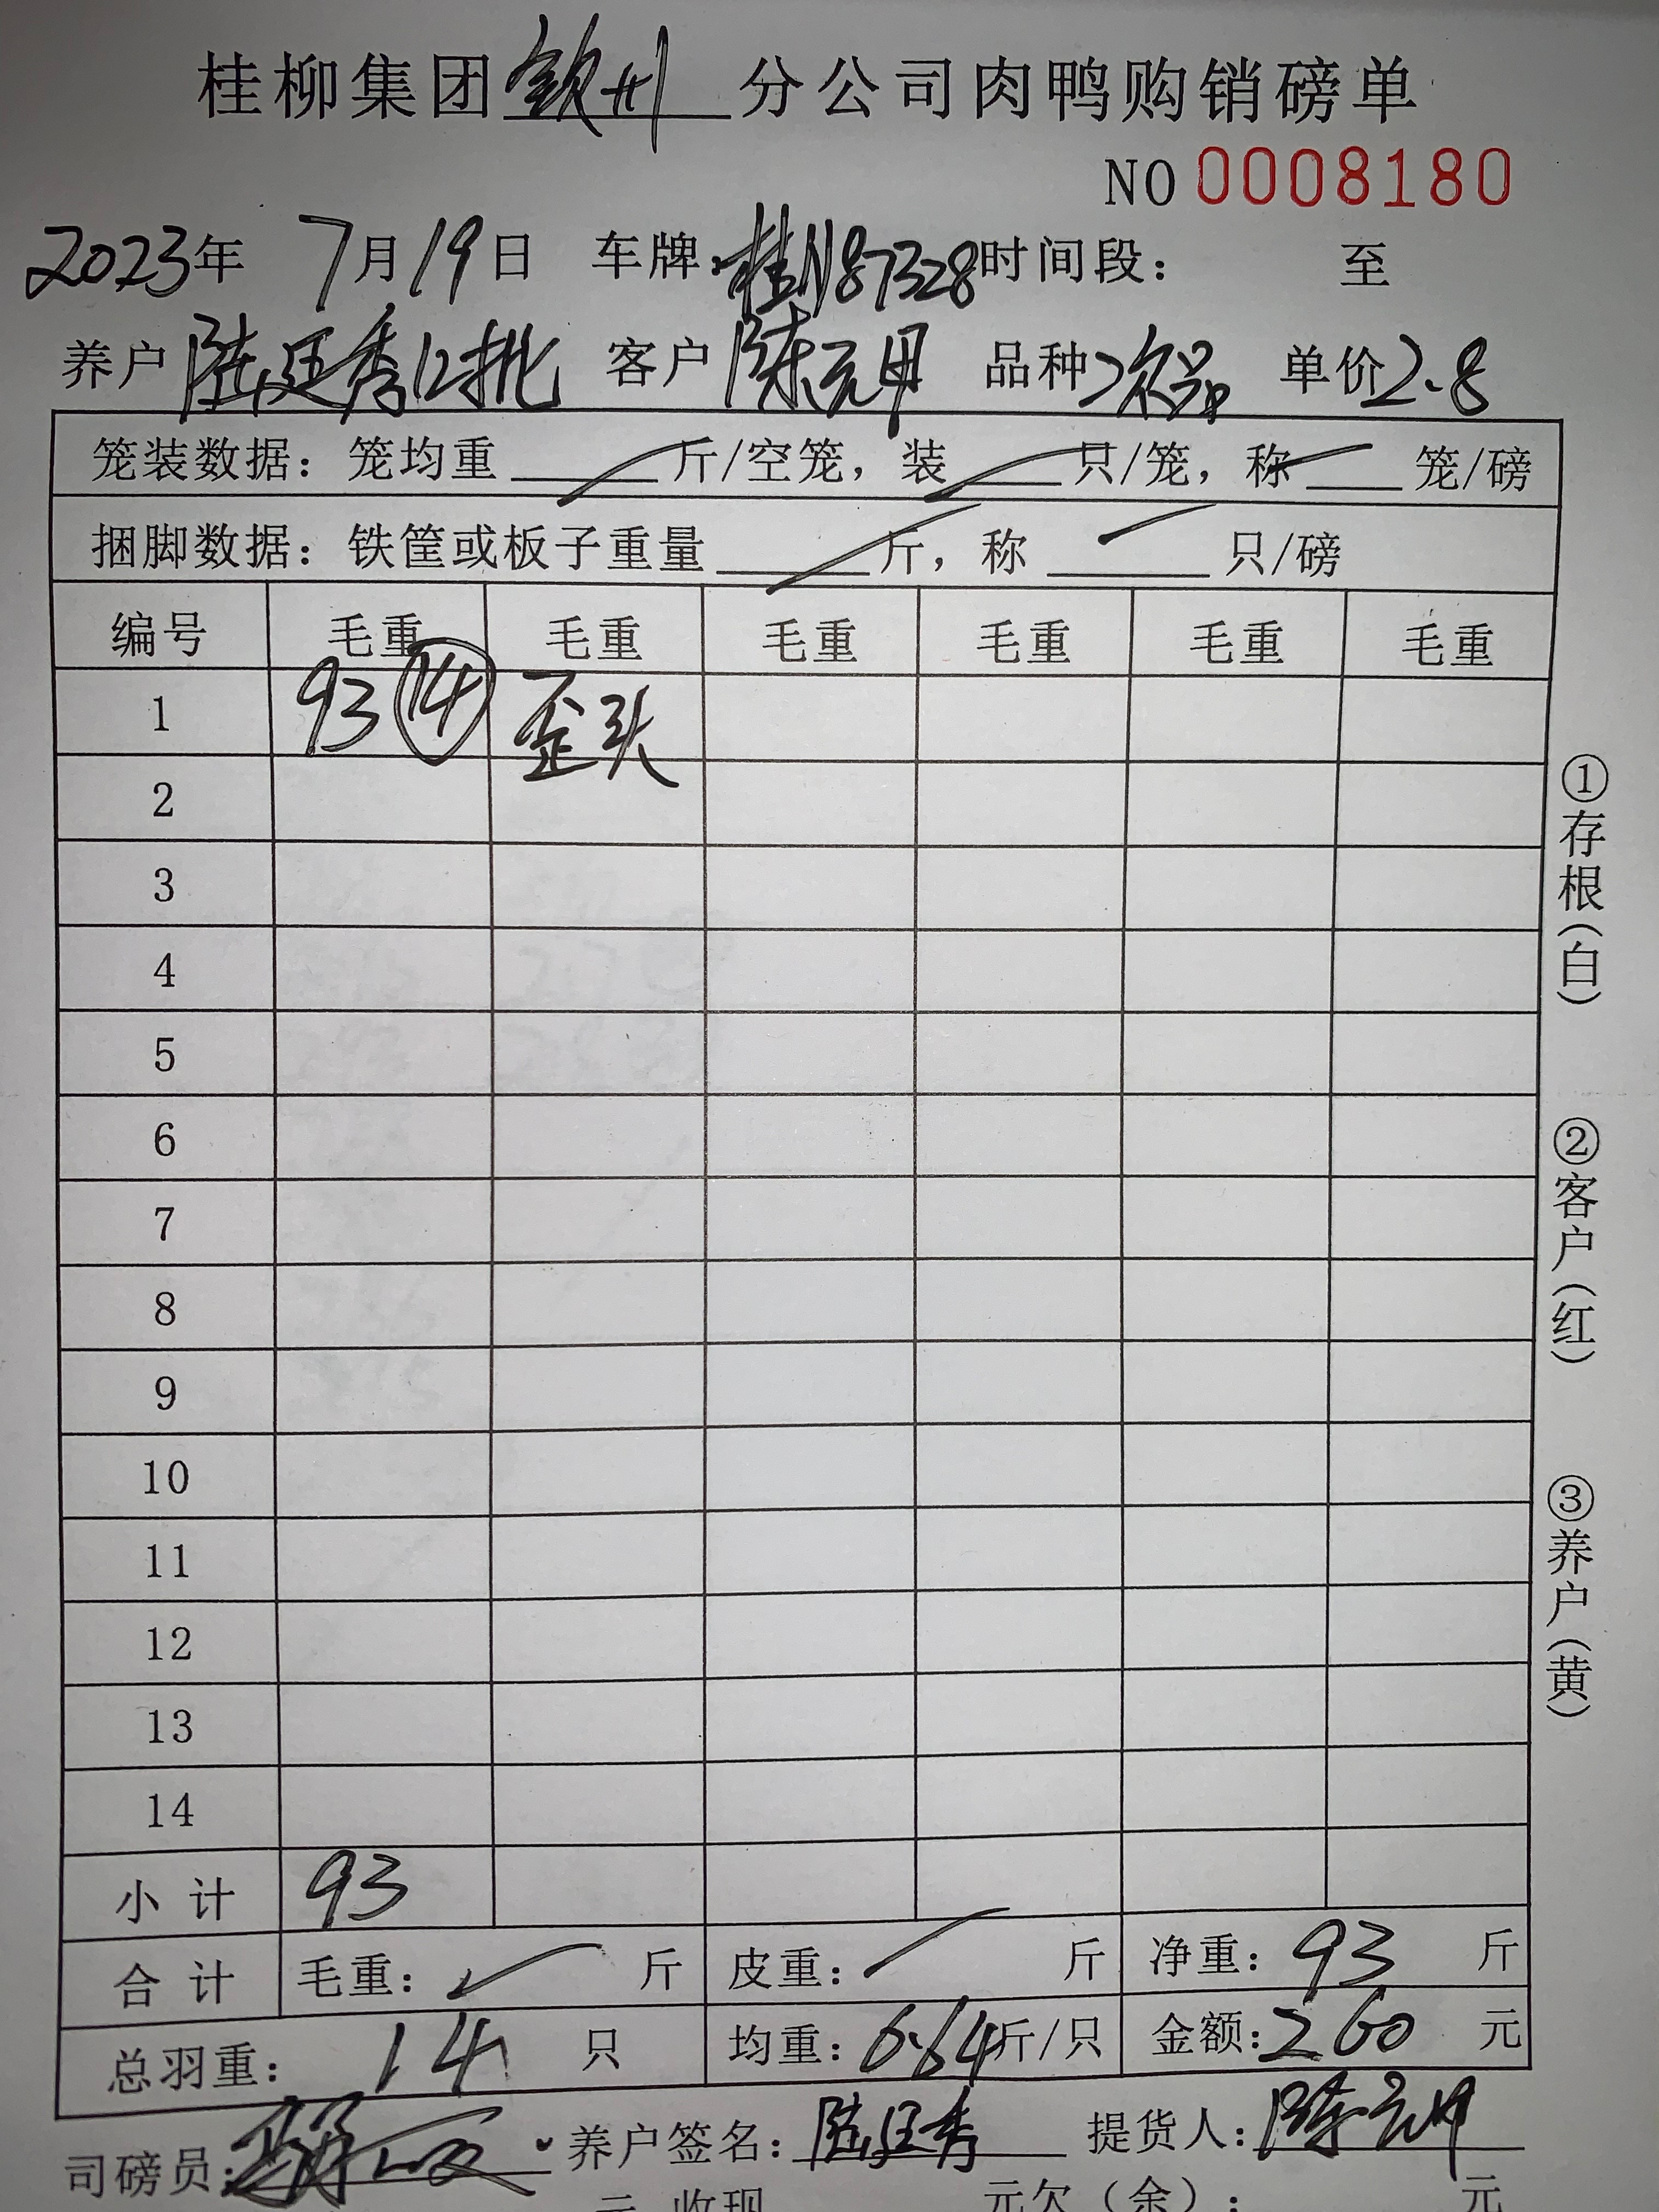 桂柳集团钦州分公司肉鸭购销磅单
NO 0008180
2023年 7月19日 车牌:桂N87328时间段: 至
养户 陆廷秀12批 客户 陈元丹 品种 次品 单价2.8
笼装数据: 笼均重 斤/空笼, 装 只/笼, 称 笼/磅
捆脚数据: 铁筐或板子重量 斤, 称 只/磅
编号 毛重 毛重 毛重 毛重 毛重 毛重
1 93 14 歪头
2
3
4
5
6
7
8
9
10
11
12
13
14
小计 93
合计 毛重: 斤 皮重: 斤 净重: 93 斤
总羽重: 14 只 均重: 6.64斤/只 金额:260 元
司磅员: 养户签名: 陆廷秀 提货人:
元 收现 元欠(余): 元
①存根(白)
②客户(红)
③养户(黄)